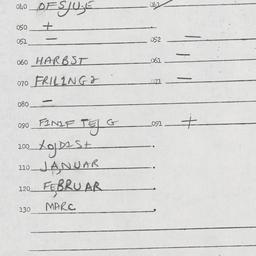 040 OFSJUSE 041
050 +
051 — 052 —
060 HARBST 061 —
070 FRILINGZ 071 —
080 —
090 FINIF TEJ G 091 +
100 XOJDIST
110 JANUAR
120 FEBRUAR
130 MARC